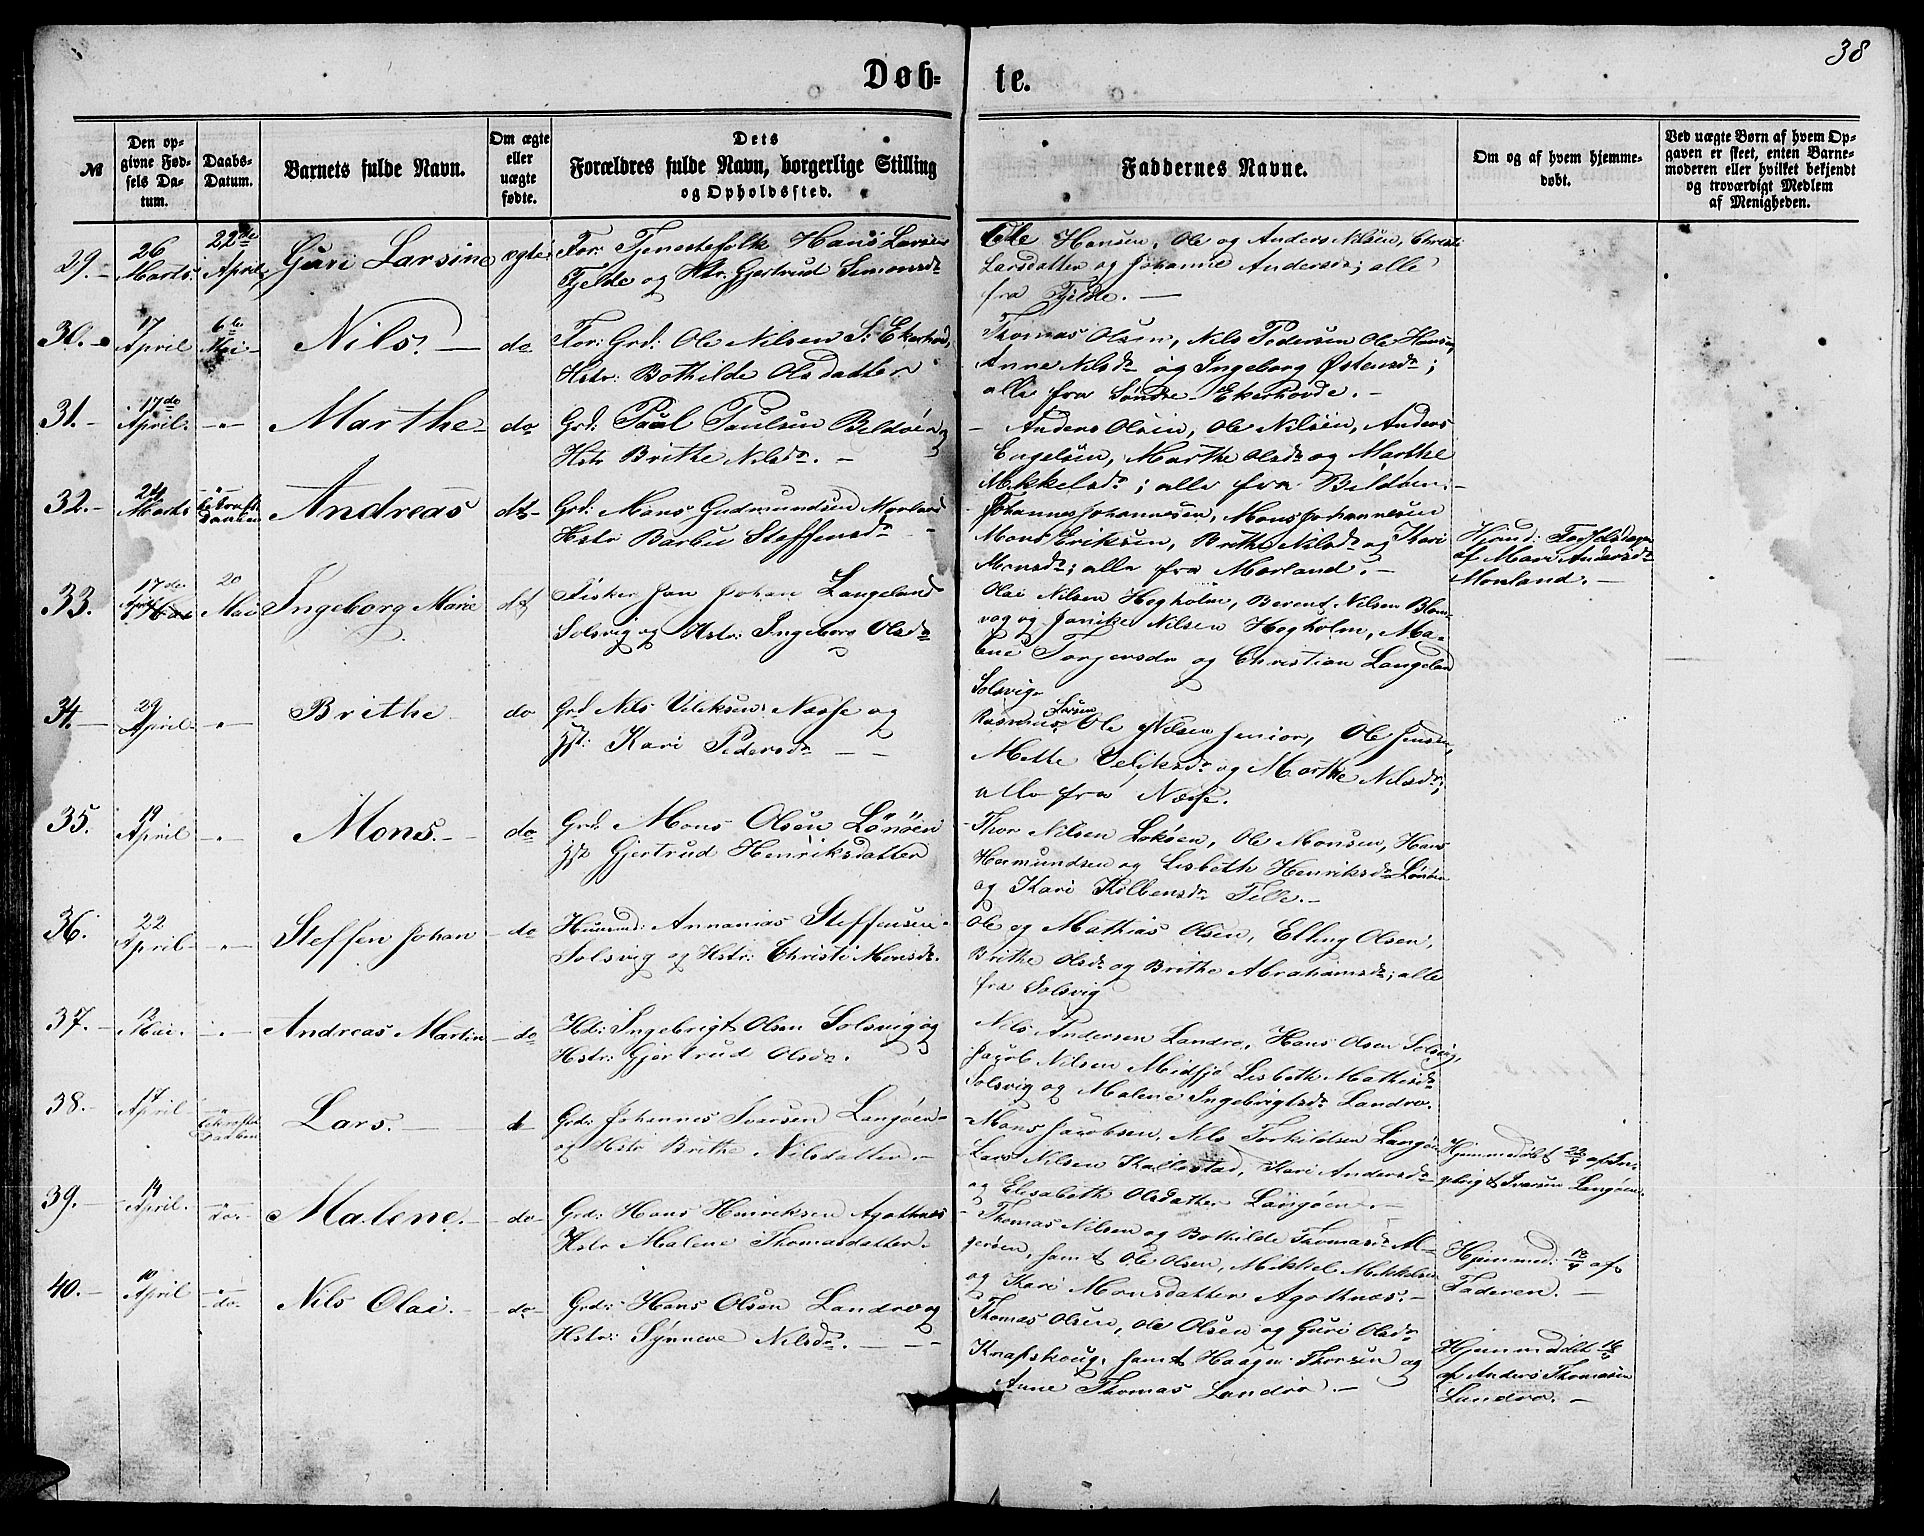 38
Døb-
te.
№
Den op-
givne Fød-
sels Da-
tum.
Daabs-
Datum.
Barnets fulde Navn.
Om ægte
eller
uægte
fødte.
Dets
Forældres fulde Navn, borgerlige Stilling
og Opholdssted.
Faddernes Navne.
Om og af hvem hjemme-
døbt.
Ved uægte Børn af hvem Op-
gaven er skeet, enten Barne-
moderen eller hvilket bekjendt
og troværdigt Medlem
af Menigheden.
29.-
26
Marts
22de
April
Guri Larsine
ægte
For: Tjenestefolk Hans Larsen
Fjelde og Hstr: Gjertrud Simonsdr
Ole Hansen, Ole og Anders Nilsen, Christi
Larsdatter og Johanne Andersdr; alle
fra Fjelde. -
30.-
17
April
6te
Mai -
Nils. -
do
For: Grd: Ole Nilsen S: Ekerhovd,
Hstr: Bothilde Olsdatter
Thomas Olsen, Nils Pedersen Ole Hansen,
Anne Nilsdr og Ingeborg Østensdr;
alle fra Søndre Ekerhovde. -
31.-
17de
April.
-"-
Marthe
do
Grd: Paul Paulsen Bildøen og
Hstr Brithe Nilsdr. -
- Anders Olsen, Ole Nilsen, Anders
Engelsen, Marthe Olsdr og Marthe
Mikkelsdr; alle fra Bildøen. -
32.-
24
Marts
Andreas
dt-
Grd: Mons Gudmundsen Morland
Hstr Barbu Steffensdr -
Johannes Johannesen, Mons Johannesen
Mons Eriksen, Brithe Nilsdr og Kari
Monsdr; alle fra Morland. -
Hjemd: Fødselsdagen
af Mari Andersdr
Morland. -
33.
17de
April
20
Mai
Ingeborg Marie
dt
Fisker Jan Johan Langeland
Solsvig og Hstr: Ingeborg Olsdr
Olai Nilsen Hegholm, Berent Nilsen Blom-
vag og Janike Nilsen Hegholm, Ma-
lene Torgersdr og Christian Langeland
Solsvig
34.-
29
April.
-"-
Brithe
do
Grd Nils Villiksen Næsse og
Hst: Kari Pedersdr - -
Rasmus Larsen Ole Nilsen senior, Ole Jensen,
Mette Villiksdr og Marthe Nilsdr;
alle fra Næsse.
35.
19
April
-"-
Mons. -
do
Grd. Mons Olsen Lønøen
Hst Gjertrud Henriksdatter
Thor Nilsen Lokøen, Ole Monsen, Hans
Hermundsen og Lisbeth Henriksdr Lønøen
og Kari Kolbensdr Telle. -
36.
22
April
-"-
Steffen Johan
do
Huusmd: Annanias Steffensen
Solsvig og Hstr: Christi Monsdr.
Ole og Mathias Olsen, Elling Olsen,
Brithe Olsdr og Brithe Abrahamsdr; alle
fra Solsvig
37.-
12
Mai.
-"-
Andreas Martin
do
Hd: Ingebrigt Olsen Solsvig og
Hstr: Gjertrud Olsdr.
Nils Andersen Landro, Hans Olsen Solsvig,
Jacob Nilsen Midsjø Lisbeth Mathisdr
Solsvig og Malene Ingebrigtsdr Landro.
38.-
17
April
Lars. -
Grd: Johannes Iversen Langøen
og Hstr Brithe Nilsdatter -
Mons Jacobsen, Nils Torkildsen Langøen
Lars Nilsen Kallestad, Kari Andersdr
og Elisabeth Olsdatter Langøen. -
Hjemmedøbt 22/4 af In-
gebrigt Iversen Langøen.
39.-
14
April.
do.
Malene. -
do
Grd: Hans Henriksen Agothnes
Hstr Malene Thomasdatter
- Thomas Nilsen og Bothilde Thomasdr
samt Ole Olsen, Mikkel Mikkelsen
og Kari Monsdatter Agothnes. -
Hjemmed: 18/4 af
Faderen. -
40.-
10
April
do.
Nils Olai. -
do
Grd: Hans Olsen Landro og
Hstr: Synneve Nilsdr. - -
Thomas Olsen, Ole Olsen og Guri Olsdr
Knapskoug, samt Haagen Thorsen og
Anne Thomas Landro. -
Hjemmedøbt
af Anders Thomasen
Landro. -